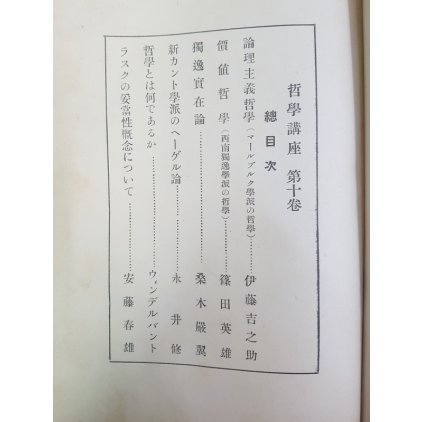 哲學講座 第十卷
總目次
論理主義哲學（マールブルク學派の哲學）…………伊藤吉之助
價値哲學（西南獨逸學派の哲學）…………篠田英雄
獨逸實在論…………桑木嚴翼
新カント學派のヘーゲル論…………永井修
哲學とは何であるか…………ウィンデルバント
ラスクの妥當性概念について…………安藤春雄